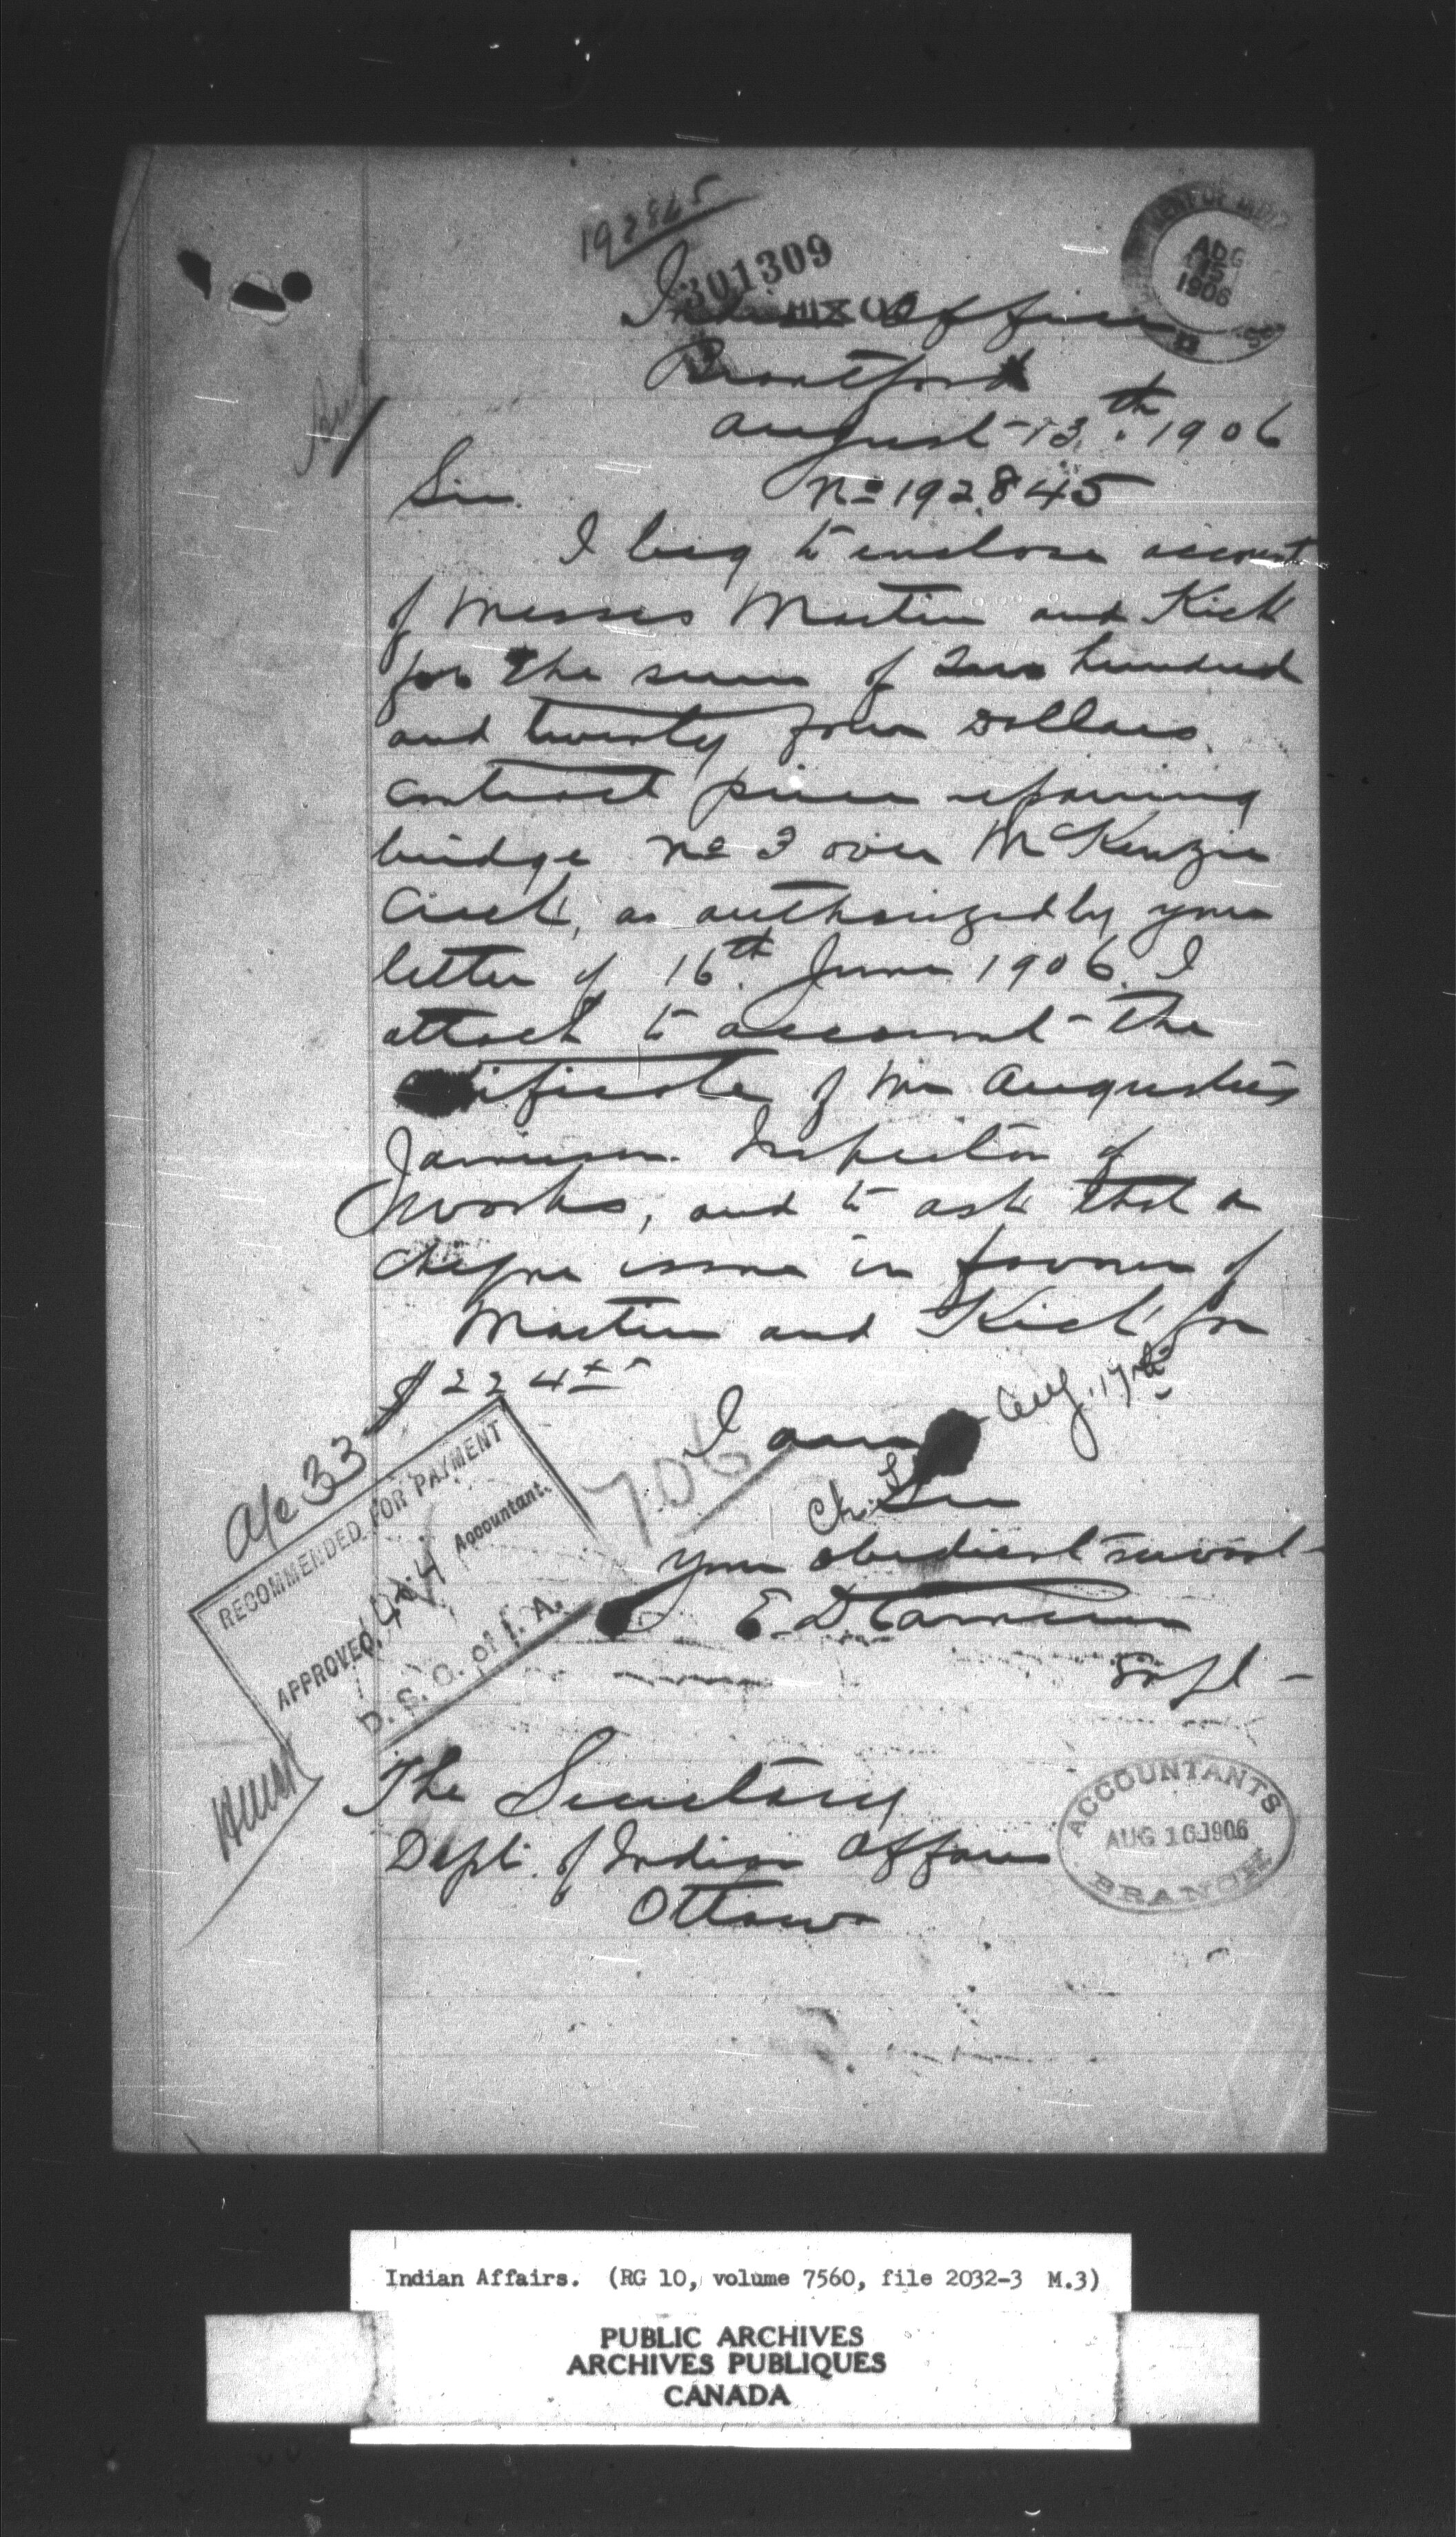 192845
301309
Indian Office
AUG 15 1906
Brantford
August 13th. 1906
Sir. No 192845
I beg to enclose account
of Messrs Martin and Kick
for the sum of Two hundred
and twenty four Dollars
contract price repairing
bridge No 3 over McKenzie
Creek, as authorized by your
letter of 16th June 1906. I
attach to account the
certificate of Mr Augustus
Jamieson. Inspector of
Works, and to ask that a
cheque issue in favour of
Martin and Kick for
$224
I am Aug. 17th
A/c 33
RECOMMENDED FOR PAYMENT
Accountant.
APPROVED
D. S. G. of I. A.
706
Ch.
Sir
Your obedient servant
E D Cameron
Supt
The Secretary
Dept. of Indian Affairs
Ottawa
ACCOUNTANTS
AUG 16 1906
BRANCH
Indian Affairs. (RG 10, volume 7560, file 2032-3 M.3)
PUBLIC ARCHIVES
ARCHIVES PUBLIQUES
CANADA